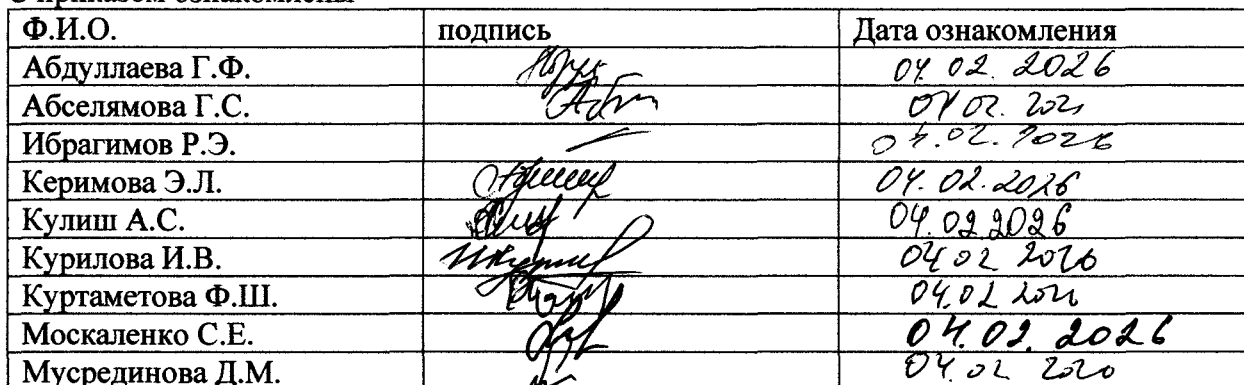 С приказом ознакомлены
Ф.И.О. подпись Дата ознакомления
Абдуллаева Г.Ф. 04.02.2026
Абселямова Г.С. 04.02.
Ибрагимов Р.Э. 04.02.2026
Керимова Э.Л. 04.02.2026
Кулиш А.С. 04.02.2026
Курилова И.В. 04 02 2026
Куртаметова Ф.Ш. 04.02
Москаленко С.Е. 04.02.2026
Мусрединова Д.М. 04 02